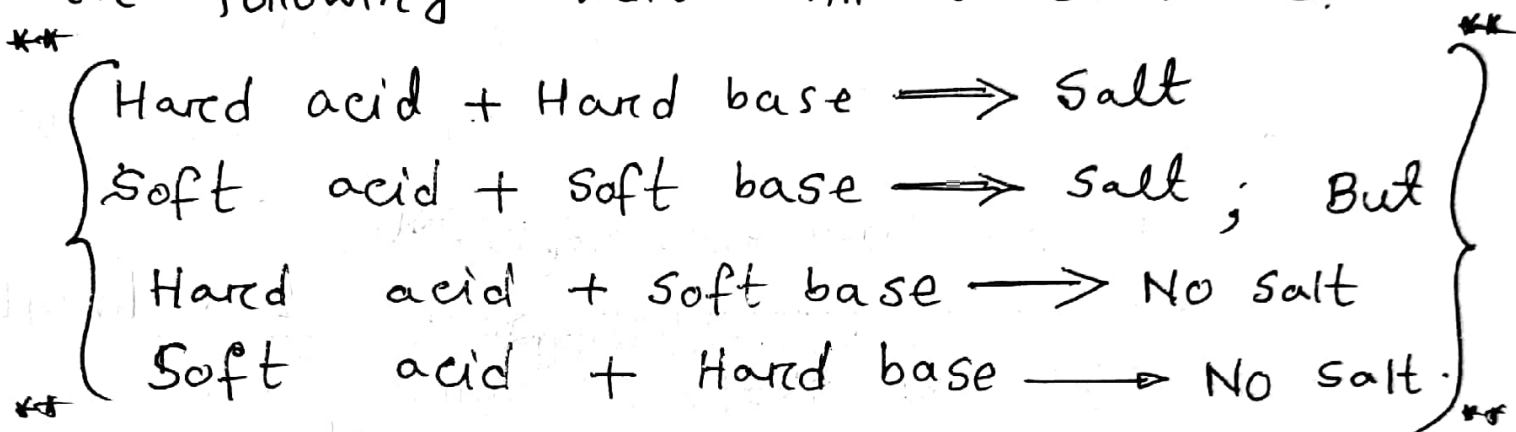 following
Hard acid + Hard base ⟹ Salt
Soft acid + Soft base ⟹ Salt ; But
Hard acid + Soft base ⟶ No Salt
Soft acid + Hard base ⟶ No Salt.